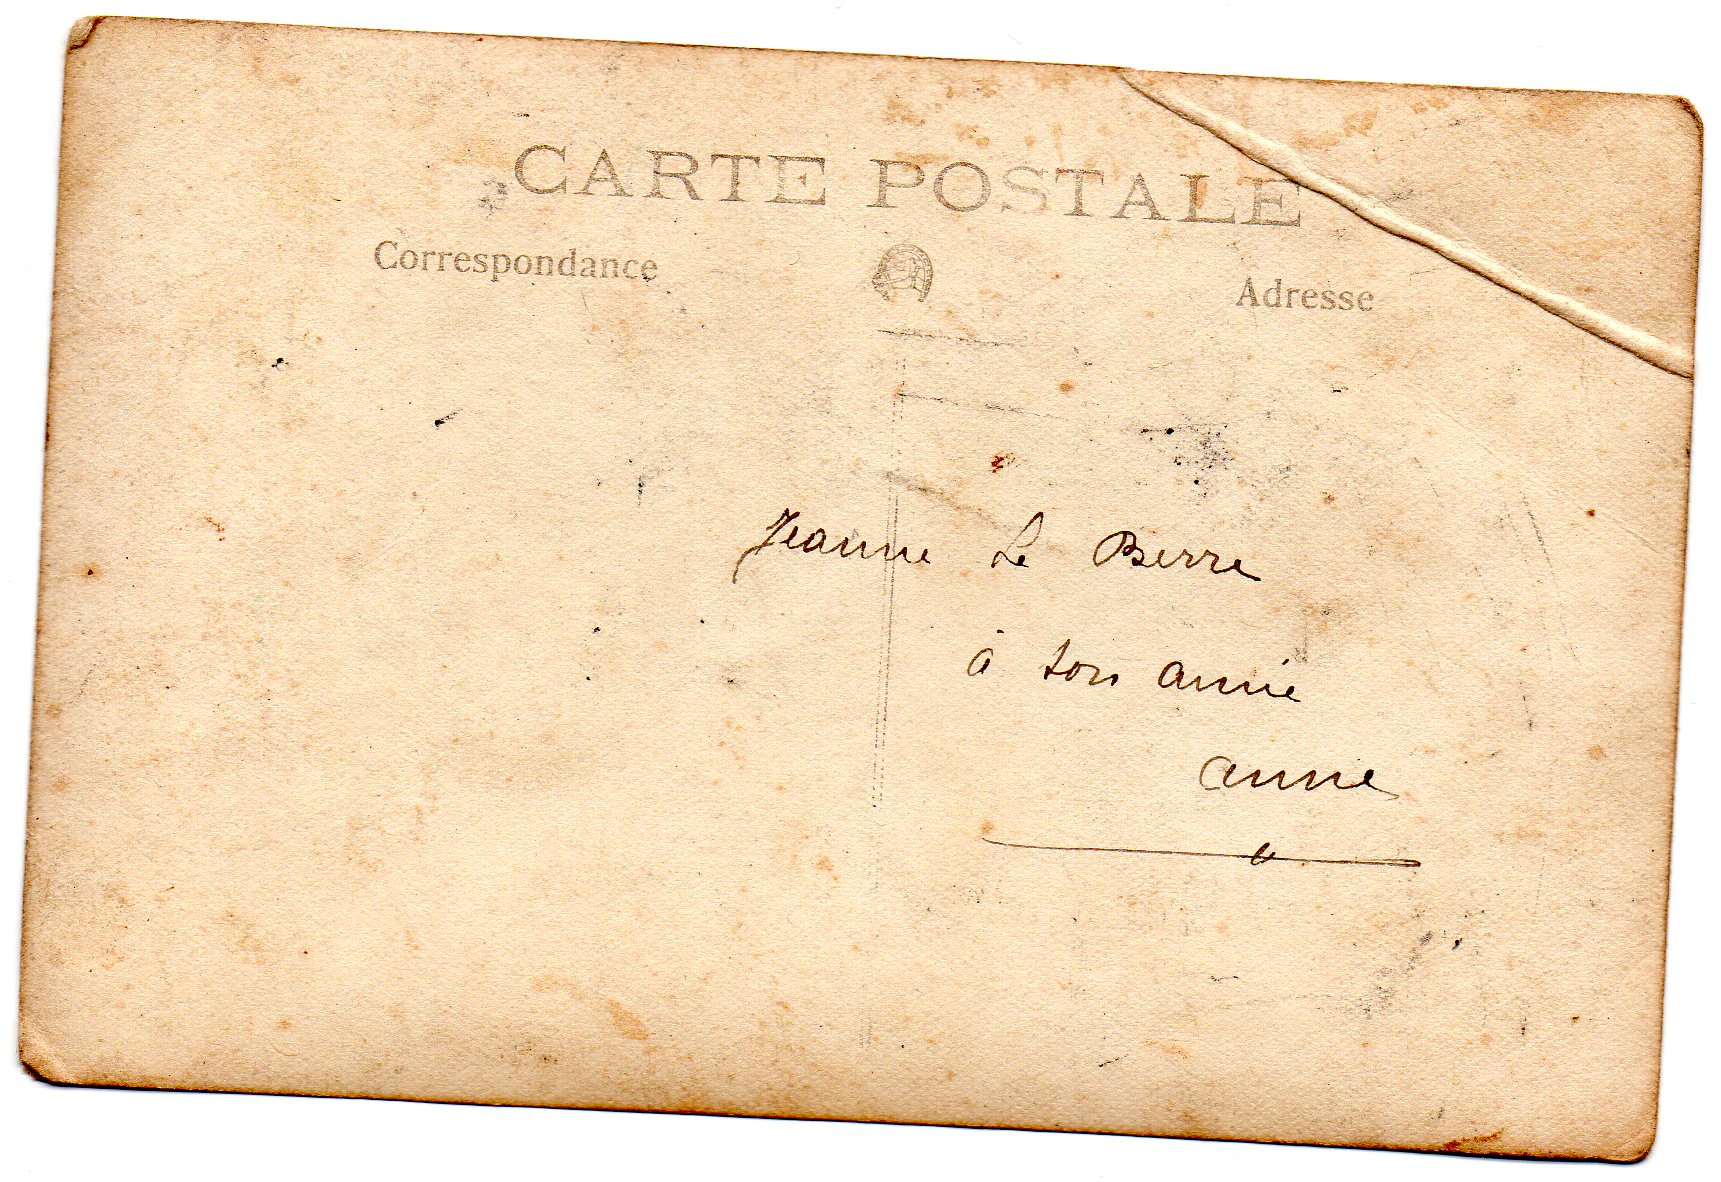 CARTE POSTALE
Correspondance
Adresse
Jeanne Le Berre
à son amie
anne